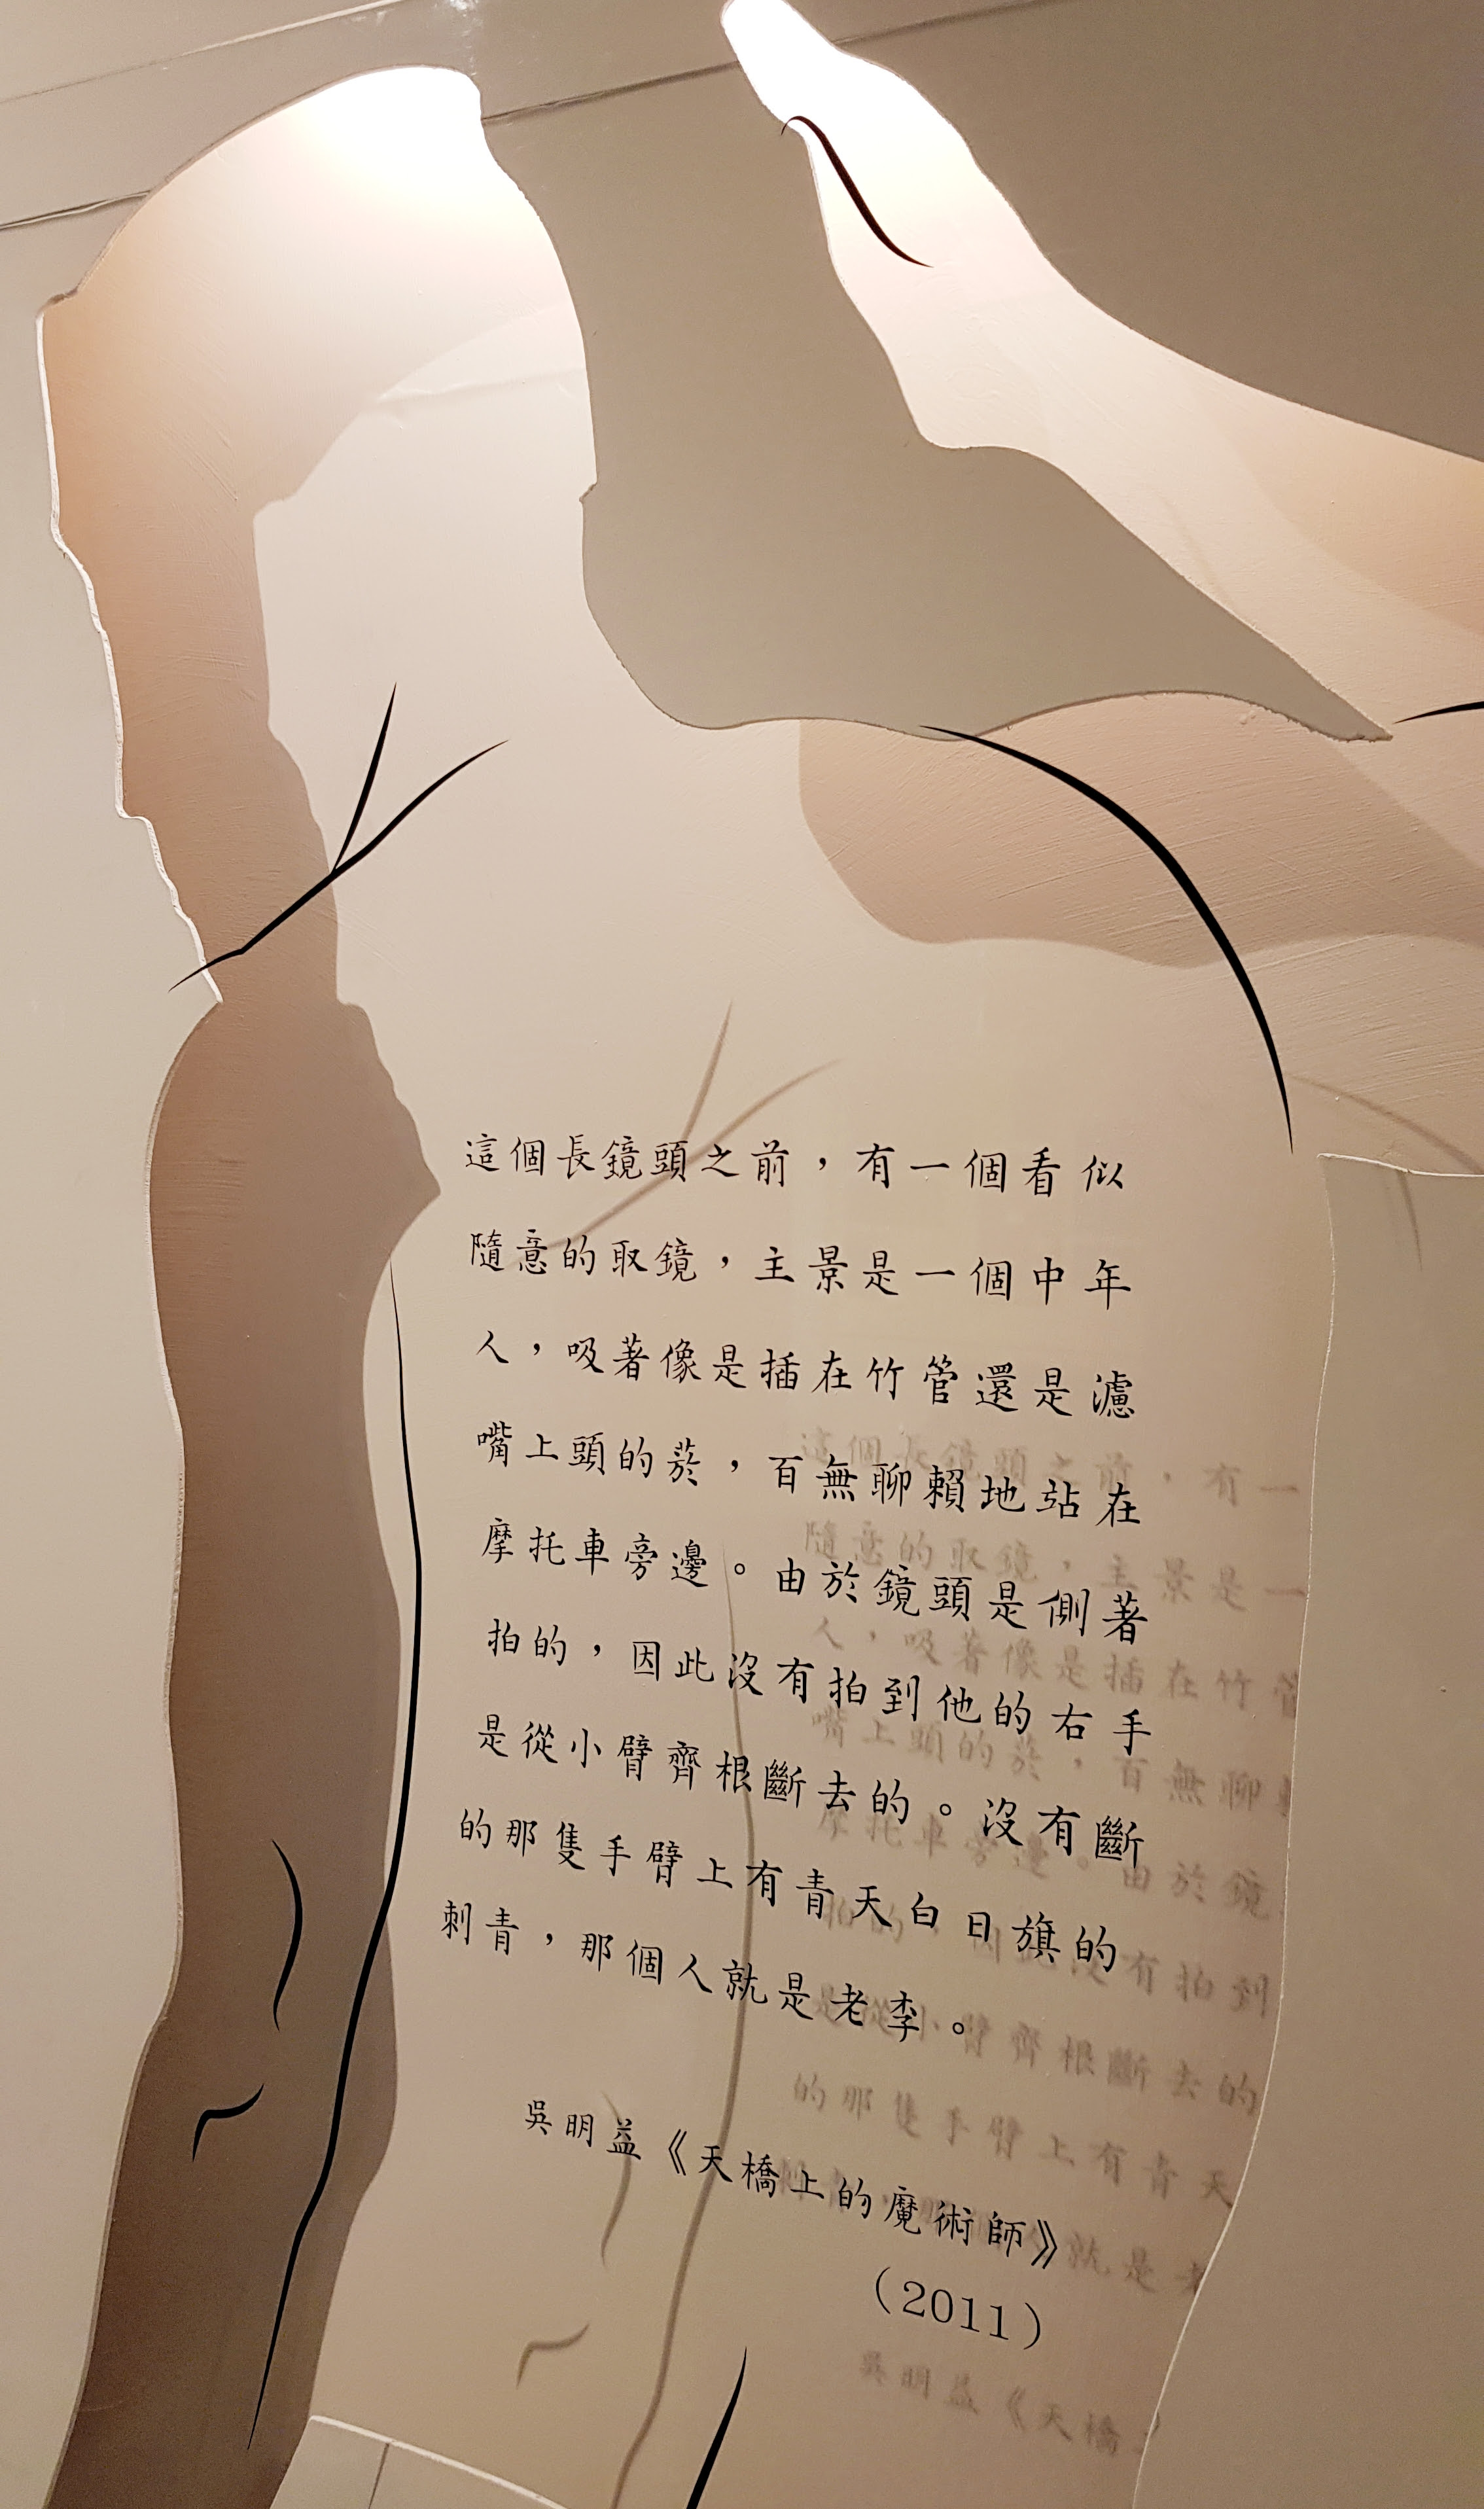 這個長鏡頭之前，有一個看似
隨意的取鏡，主景是一個中年
人，吸著像是插在竹管還是濾
嘴上頭的菸，百無聊賴地站在
摩托車旁邊。由於鏡頭是側著
拍的，因此沒有拍到他的右手
是從小臂齊根斷去的。沒有斷
的那隻手臂上有青天白日旗的
刺青，那個人就是老李。
吳明益《天橋上的魔術師》
（2011）